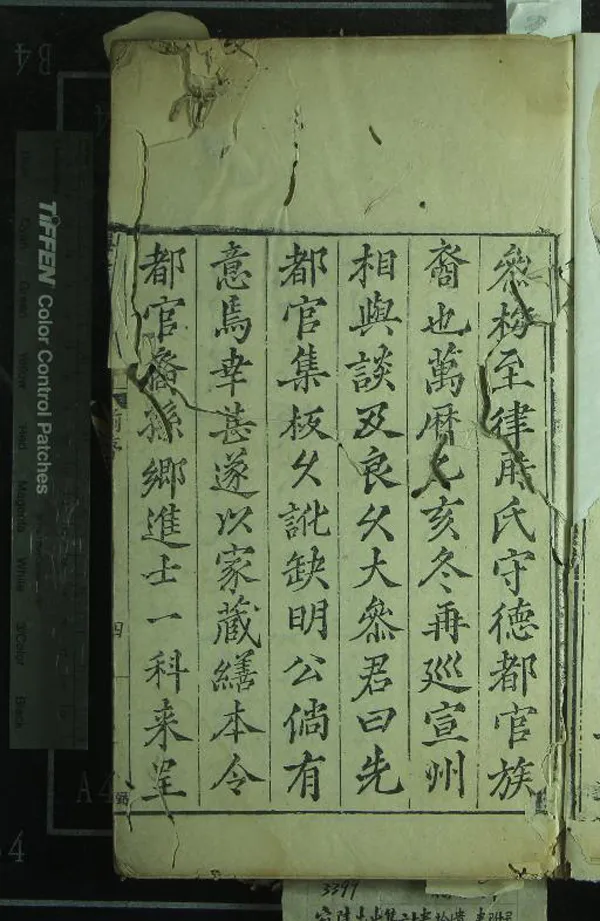 叅梅至律氏守德都官族
裔也萬曆乙亥冬再廵宣州
相與談及良久大叅君曰先
都官集板久訛缺明公倘有
意焉幸甚遂以家藏繕本令
都官裔孫鄉進士一科来呈
四
TIFFEN Color Control Patches
Magenta
White
3/Color
Black
B4
A4
3397